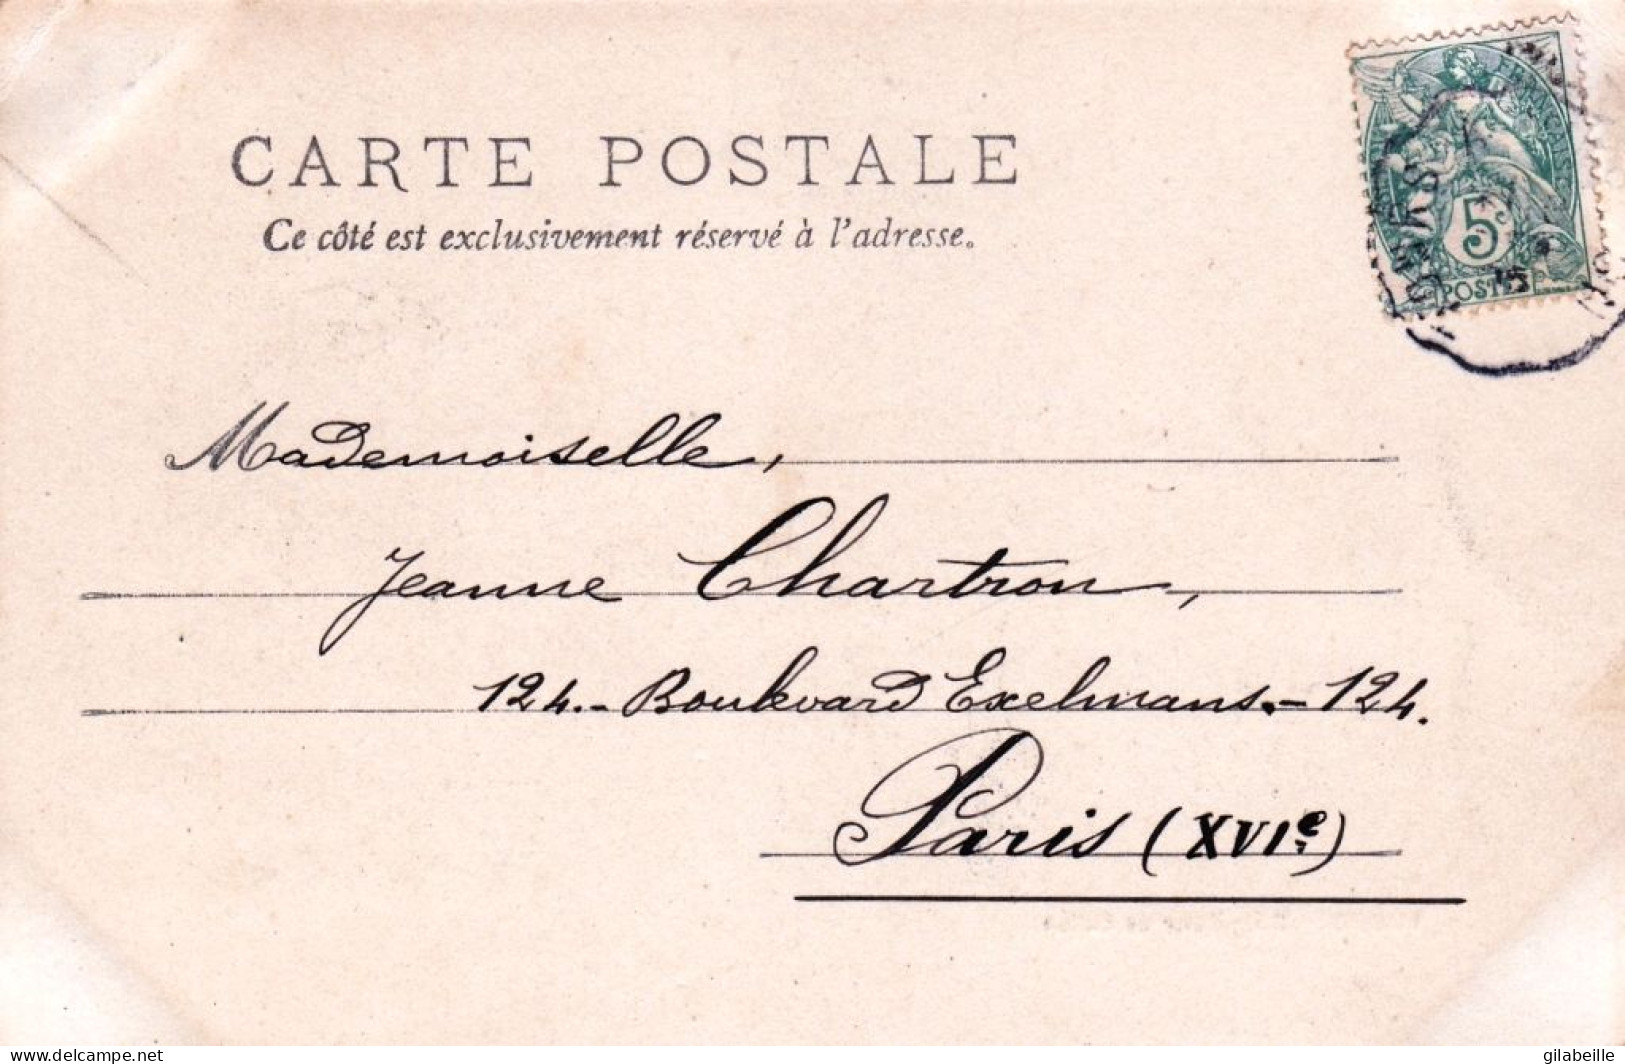 CARTE POSTALE
Ce côté est exclusivement réservé à l'adresse.
5c
POSTES
Mademoiselle,
Jeanne Chartron,
124.- Boulevard Exelmans.- 124.
Paris (XVIe)
www.delcampe.net
gilabeille